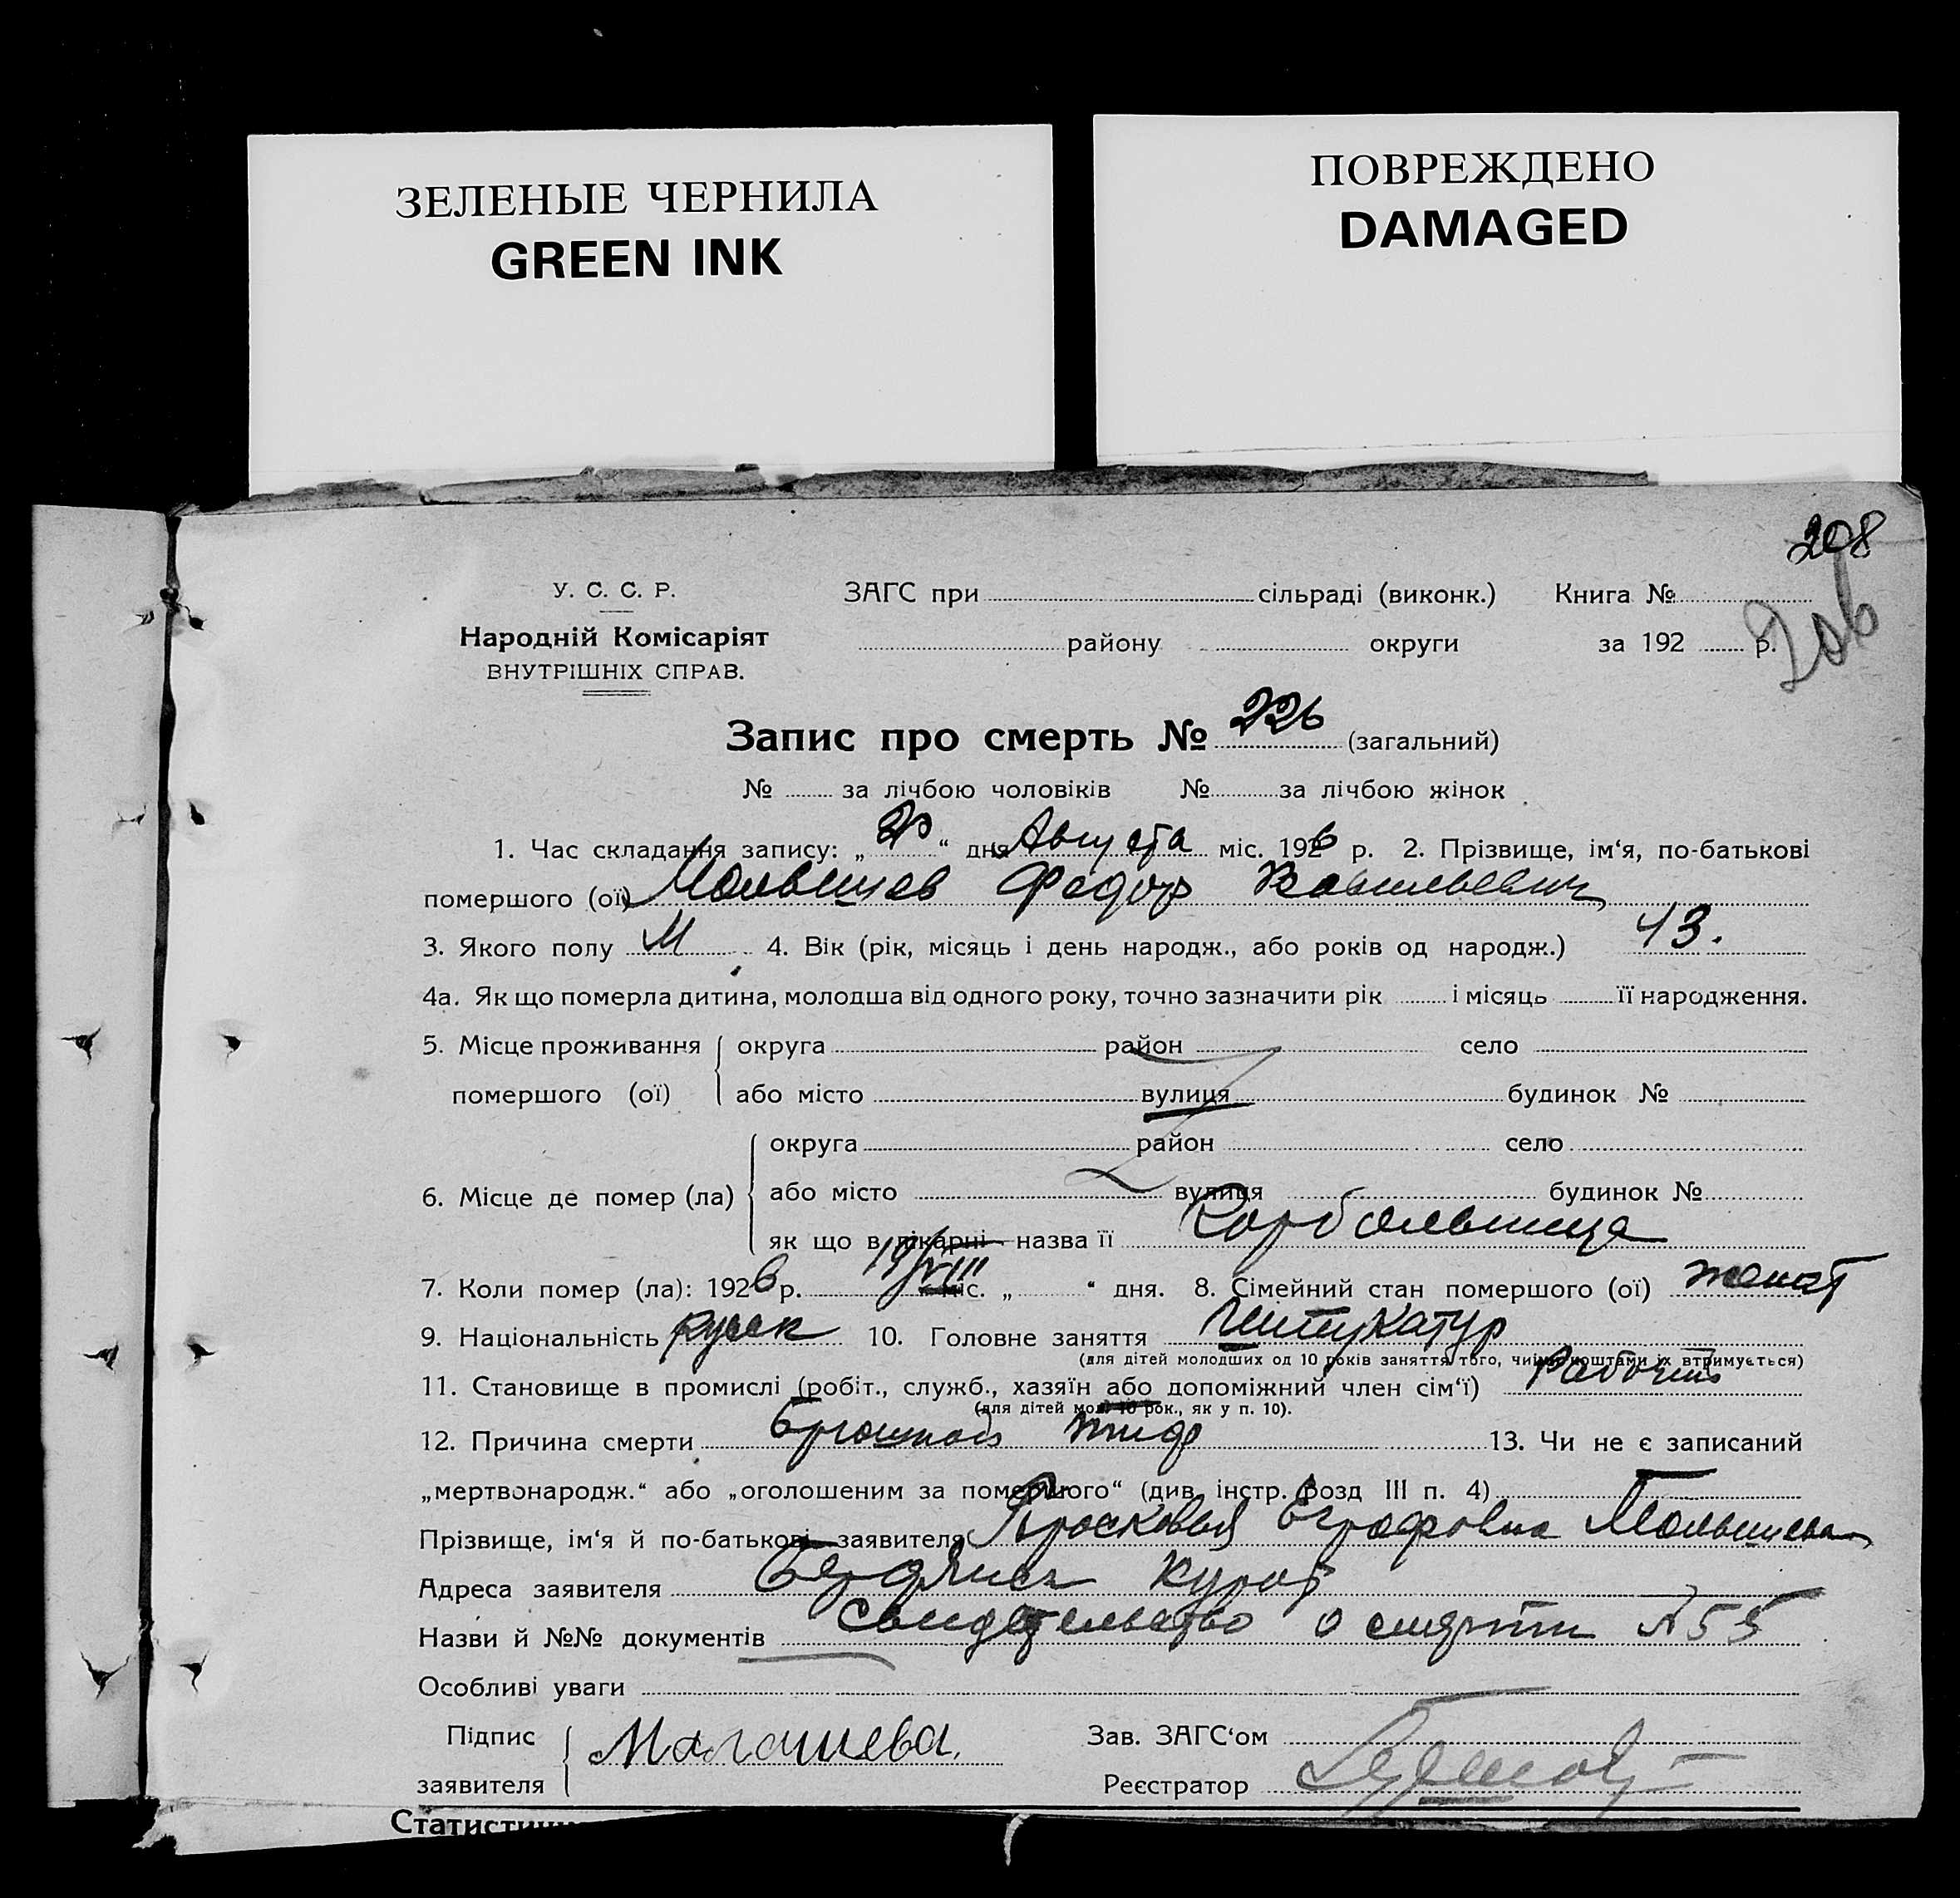 ЗЕЛЕНЫЕ ЧЕРНИЛА
GREEN INK
ПОВРЕЖДЕНО
DAMAGED
208
206
У. С. С. Р.
Народній Комісаріят
ВНУТРІШНІХ СПРАВ.
ЗАГС при сільраді (виконк.) Книга №
району округи за 192 р.
Запис про смерть № 226 (загальний)
№ за лічбою чоловіків № за лічбою жінок
1. Час складання запису: „ “ дня Августа міс. 1926 р. 2. Прізвище, ім‘я, по-батькові
помершого (ої) Малышев Федор Васильевич
3. Якого полу М 4. Вік (рік, місяць і день народж., або років од народж.) 43.
4а. Як що померла дитина, молодша від одного року, точно зазначити рік і місяць її народження.
5. Місце проживання округа район село
помершого (ої) або місто вулиця будинок №
6. Місце де помер (ла) округа район село
або місто вулиця будинок №
як що в лікарні назва її Горбольница
7. Коли помер (ла): 1926 р. 19/VIII міс. „ “ дня. 8. Сімейний стан помершого (ої) женат
9. Національність русск 10. Головне заняття Штукатур
(для дітей молодших од 10 років заняття того, чиїми коштами їх втримується)
11. Становище в промислі (робіт., служб., хазяїн або допоміжний член сім‘ї) Рабочий
(для дітей мол. 10 рок., як у п. 10).
12. Причина смерти Брюшной тиф 13. Чи не є записаний
„мертвонародж.“ або „оголошеним за померлого“ (див. інстр. розд III п. 4)
Прізвище, ім‘я й по-батькові заявителя Просковья Еграфовна Малышева
Адреса заявителя Бердянск Курорт
Назви й №№ документів Свидетельство о смерти № 55
Особливі уваги
Підпис
заявителя Малашева.
Зав. ЗАГС‘ом
Реєстратор
Статистичн